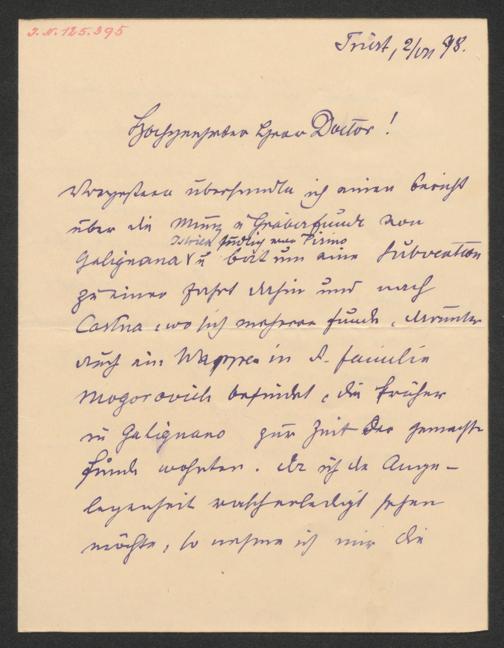 J.N. 125.395
Triest, 2/VII 98.
Hochgeehrter Herr Doctor!
Vorgestern übersandte ich einen Bericht
über die Münz u Gräberfunde von
Istrien südlich von Pisino
Galignana u bat um eine Subvention
zu einer Fahrt dahin und nach
wo sich mehrere Funde, darunter
auch ein Wappen in d. Familie
Mogorovich befindet, die früher
in Galignano zur Zeit der gemachten
Funde wohnten. Da ich die Ange-
legenheit rascherledigt sehen
möchte, so nehme ich mir die